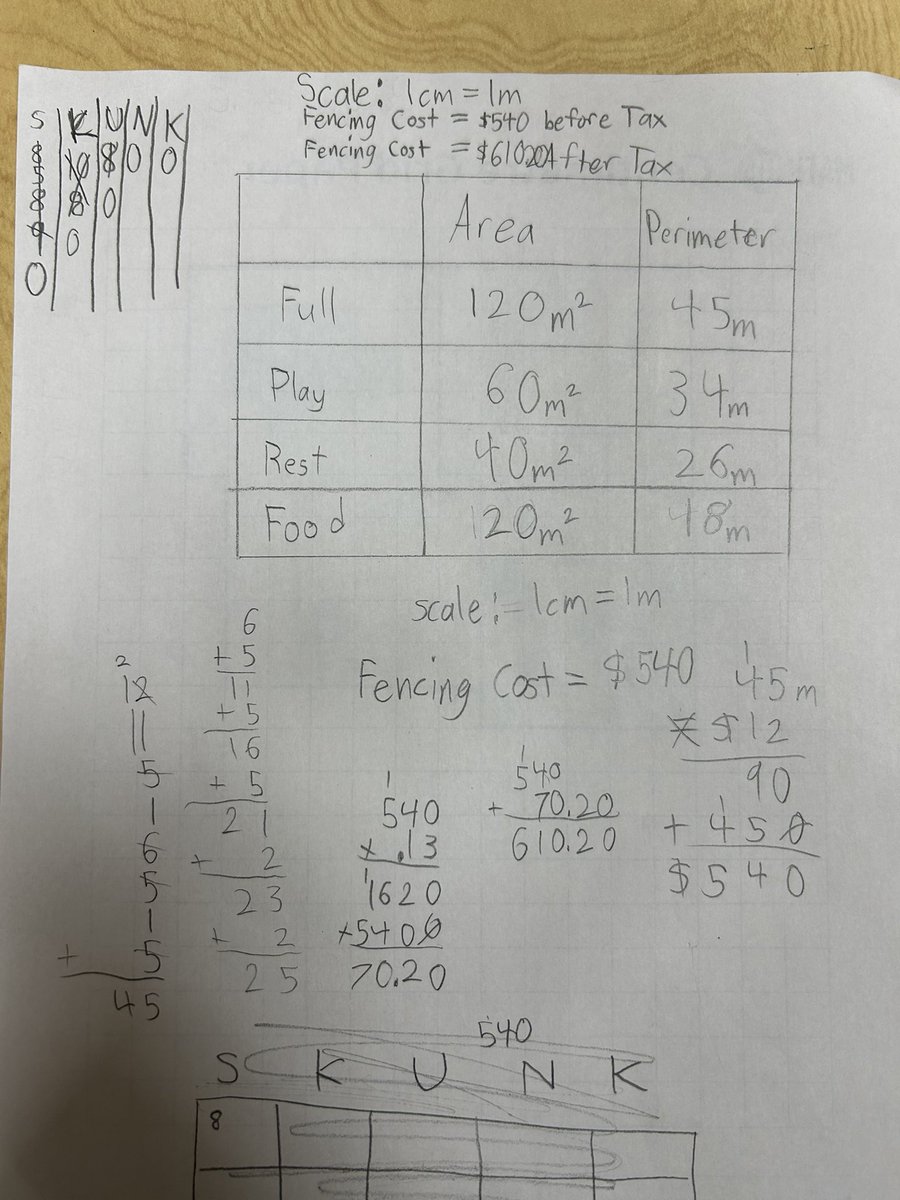 Scale: 1cm = 1m
Fencing Cost = $540 before Tax
Fencing Cost = $610.20 After Tax
S K U N K
8 10 8 0 0
5 8 0
8 0
0
Area Perimeter
Full 120m² 45m
Play 60m² 34m
Rest 40m² 26m
Food 120m² 48m
scale:- 1cm = 1m
Fencing Cost = $540
2
12
11
5
1
6
5
1
+ 5
45
6
+ 5
11
+ 5
16
+ 5
21
+ 2
23
+ 2
25
1
540
x .13
1620
+5400
70.20
1
540
+ 70.20
610.20
1
45m
x $12
90
+ 450
$540
540
S K U N K
8